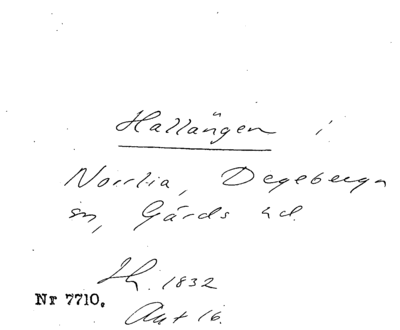 Hallängen i
Norrlia, Degeberga
sn, Gärds hd.
1832
Nr 7710.
Akt 16.